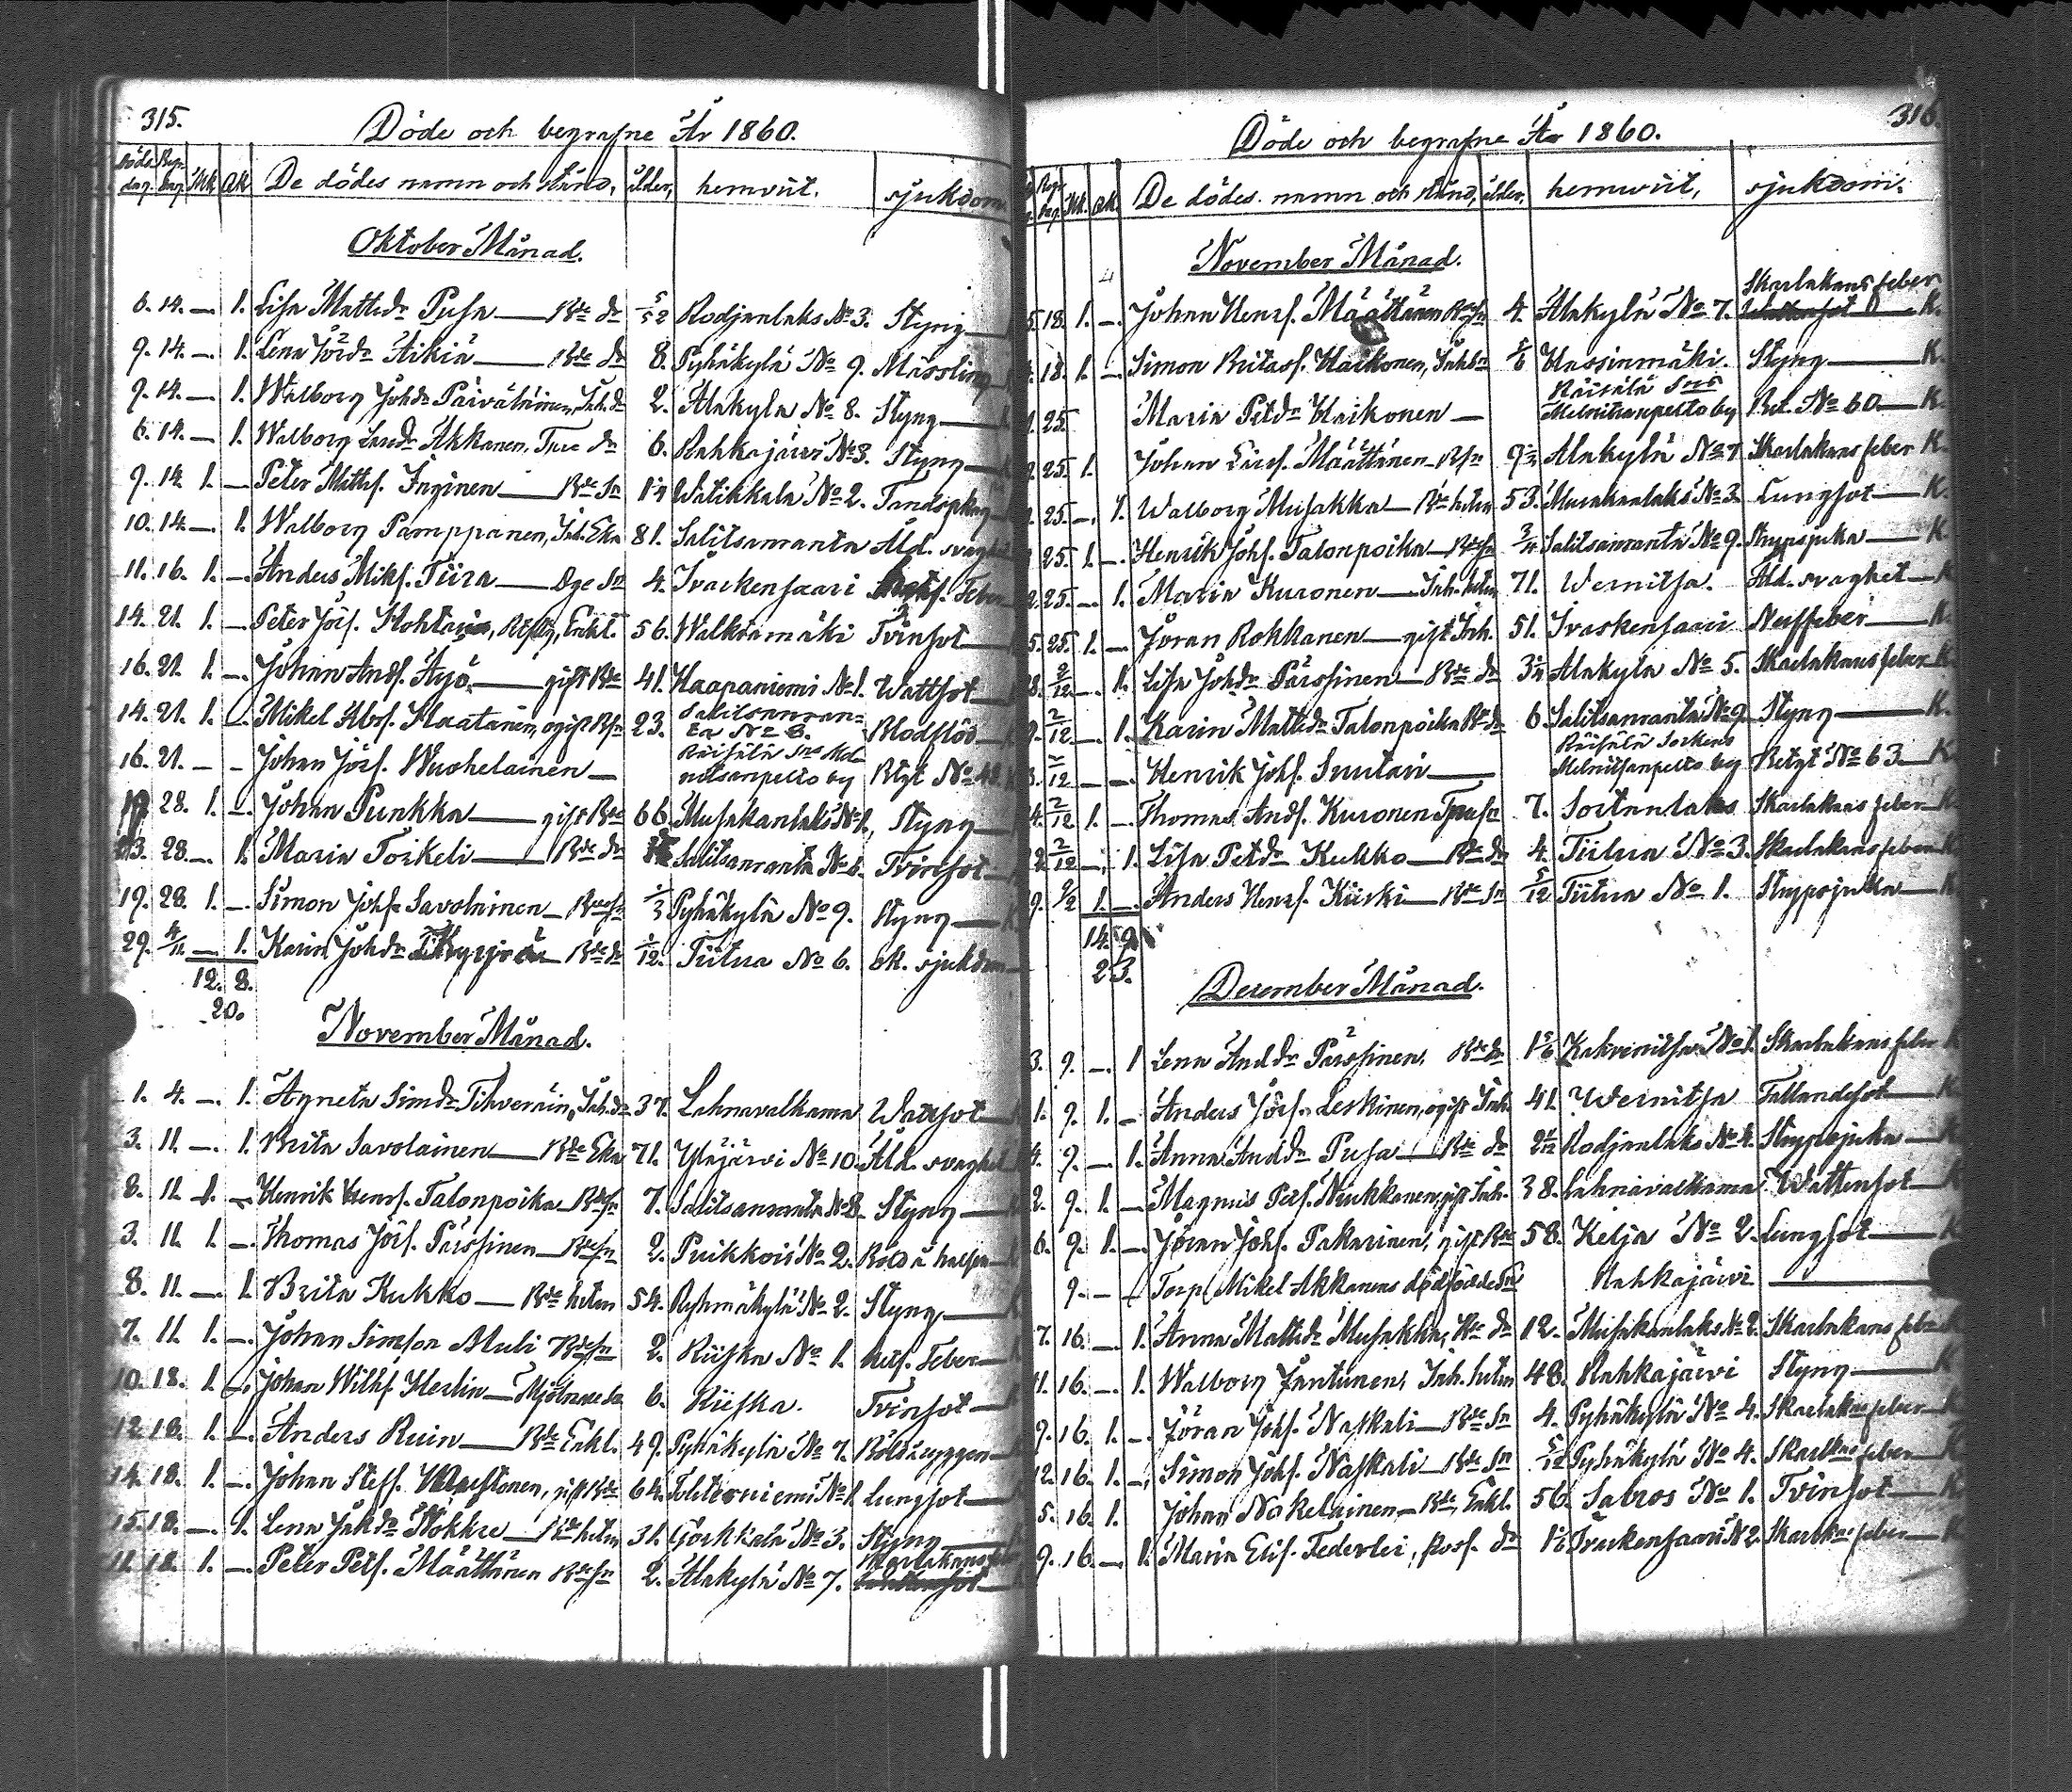 315.
Döde och begrafne År 1860.
Döds dag. Begr. dag. Mk. Qk. De dödes namn och stånd, ålder, hemvist, sjukdom
Oktober Månad.
6. 14. — 1. Lisa Mattsdr Pusa — Bde dr 5/52 Rodjanlaks No 3. Styng
9. 14. — 1. Lena Jördr Äikiä — Bde dr 8. Pyhäkylä No 9. Mässling
9. 14. — 1. Walborg Johdr Päiväläinen, Inh. dr 2. Alakylä No 8. Styng
6. 14. — 1. Walborg Akkanen, Torp dr 6. Rahkajärvi No 8. Styng
9. 14. 1. — Peter Mattsf. Inginen — Bde Sn Watikkala No 2. Tandsprkng
10. 14. — 1. Walborg Pamppanen, Inh. Eka 81. Salitsanranta Åld. svaghet
11. 16. 1. — Anders Mikf. Tiira — Dge Sn 4. Ivaskensaari Feber
14. 21. 1. — Peter Jörf. Enkl. 56. Walkiamäki Tvinsot
16. 21. 1. — Johan Andf. Äijö — gift Bde 41. Haapaniemi No 1. Wattsot
14. 21. 1. — Mikel Abrf. Haatanen, ogift Bsn 23. Salitsanran=
ta No 8. Blodflöd
16. 21. — — Johan Jörf. Wuohelainen — Räisälä Sns Mel
nitsanpelto by Btgt No 48.
28. 1. — Johan Punkka — gift Bde 66. Musakanlaks No 1. Styng
23. 28. — 1. Maria Torkeli — Bde dr Salitsanranta No 6. Tvinsot
19. 28. 1. — Simon Johf. Savolainen — Bdesn 1/3 Pyhäkylä No 9. Styng
29. 4/11 — 1. Karin Johdr Bde dr 1/12. Tiitua No 6. ok. sjukdom
12. 8.
20.
November Månad.
1. 4. — 1. Agneta Simdr Tihveräin, Inh. dr 37. Lahnavalkama Wattsot
3. 11. — 1. Brita Savolainen — Bde Eka 71. Yläjärvi No 10. Åld. svaghet
8. 11. 1. — Henrik Henrf. Talonpoika Bdesn 7. Salitsanranta No 8. Styng
3. 11. 1. — Thomas Jörf. Pärssinen — Bdesn 2. Puikkois No 2. Böld i halsen
8. 11. — 1. Brita Kukko — Bde hstru 54. Ryhmäkylä No 2. Styng
7. 11. 1. — Johan Simsson Muli Bdesn 2. Riiska No 1. hets. Feber
10. 18. 1. — Johan Wilhf Herlin — Mjölnare Sn 6. Riiska. Tvinsot
12. 18. 1. — Anders Ruin — Bde Enkl. 49. Pyhäkylä No 7. Böld i ryggen
14. 18. 1. — Johan Steff. gift Bde 64. No 1. Lungsot
15. 18. — 1. Lena Jakdr Nokkre — Bde hstru 31. Görkkala No 3. Styng
11. 18. 1. — Peter Petf. Määttänen Bdesn 2. Alakylä No 7. Skarlakansfeber
316.
Döde och begrafne År 1860.
Begr. dag. Mk. Qk. De dödes namn och stånd, ålder, hemvist, sjukdom.
November Månad.
5. 18. 1. — Johan Henrf. Määttänen Bdesn 4. Alakylä No 7. Skarlakansfeber K.
18. 1. — Simon Britasf. Haikonen, Inhsn Hassinmäki. Styng — K.
25. Maria Petdr Haikonen — Räisälä Sns
Melnitsanpelto by Bet. No 60. — K.
25. 1. Johan Larsf. Määttänen — Bsn Alakylä No 7 Skarlakansfeber K.
25. — 1. Walborg Musakka — Bde hstru 53. Musakanlaks No 3. Lungsot — K.
25. 1. — Henrik Johf. Talonpoika — Bdesn Salitsanranta No 9. Strypsjuka — K
25. — 1. Maria Kuronen — Inh. hstru 71. Wernitsa. Åld. svaghet — K
25. 1. — Jöran Rokkanen — gift Inh. 51. Ivaskensaari Nerffeber — K.
2/12 — 1. Lisa Johdr Pärssinen — Bde dr Alakylä No 5. Skarlakansfeber K
2/12 — 1. Karin Mattsdr Talonpoika Bde dr 6. Salitsanranta No 9. Styng — K.
2/12 — — Henrik Johf. Suutari — Räisälä Sockens
Melnitsanpelto by Betgt No 63. — K
2/12 1. — Thomas Andf. Kuronen Torpsn 7. Sortanlaks Skarlakans feber K
2/12 — 1. Lisa Petdr Kukko — Bde dr 4. Tiitua No 3. Skarlakansfeber K
9/12 1. — Anders Henrf. Kiiski — Bde Sn 5/12 Tiitua No 1. Strypsjuka — K
14. 9.
23.
December Månad.
3. 9. — 1 Lena Anddr Pärssinen, Bde dr Kahvenitsa No 1. Skarlakansfeber K
1. 9. 1. — Anders Jörf. Leskinen, ogift Inh. 41. Wernitsa Fallandesot — K
4. 9. — 1. Anna Anddr Pusa — Bde dr Rodjanlaks No 4. Strypsjuka — K
2. 9. 1. — Magnus Petf. Neukkanen, gift Inh. 38. Lahnavalkama. Wattensot — K
6. 9. 1. — Jöran Johf. Pakarinen, gift Bde 58. Kelja No 2. Lungsot — K
9. — — Torp. Mikel Akkanens dödfödde Sn Rahkajärvi —
7. 16. — 1. Anna Mattsdr Musakka, Bde dr 12. Musakanlaks No 2. Skarlakans feber
11. 16. — 1. Walborg Jäntunen, Inh. hstru 48. Rahkajärvi Styng — K
9. 16. 1. — Jöran Johf. Naskali — Bde Sn 4. Pyhäkylä No 4. Skarlakansfeber K
12. 16. 1. — Simon Johf. Naskali — Bde Sn 5/12 Pyhäkylä No 4. Skarlkansfeber K
5. 16. 1. Johan Nokelainen — Bde Enkl. 56. Sabros No 1. Tvinsot — K
9. 16. — 1. Maria Elis. Federlei, Poss. dr No 2. Skarlkansfeber K